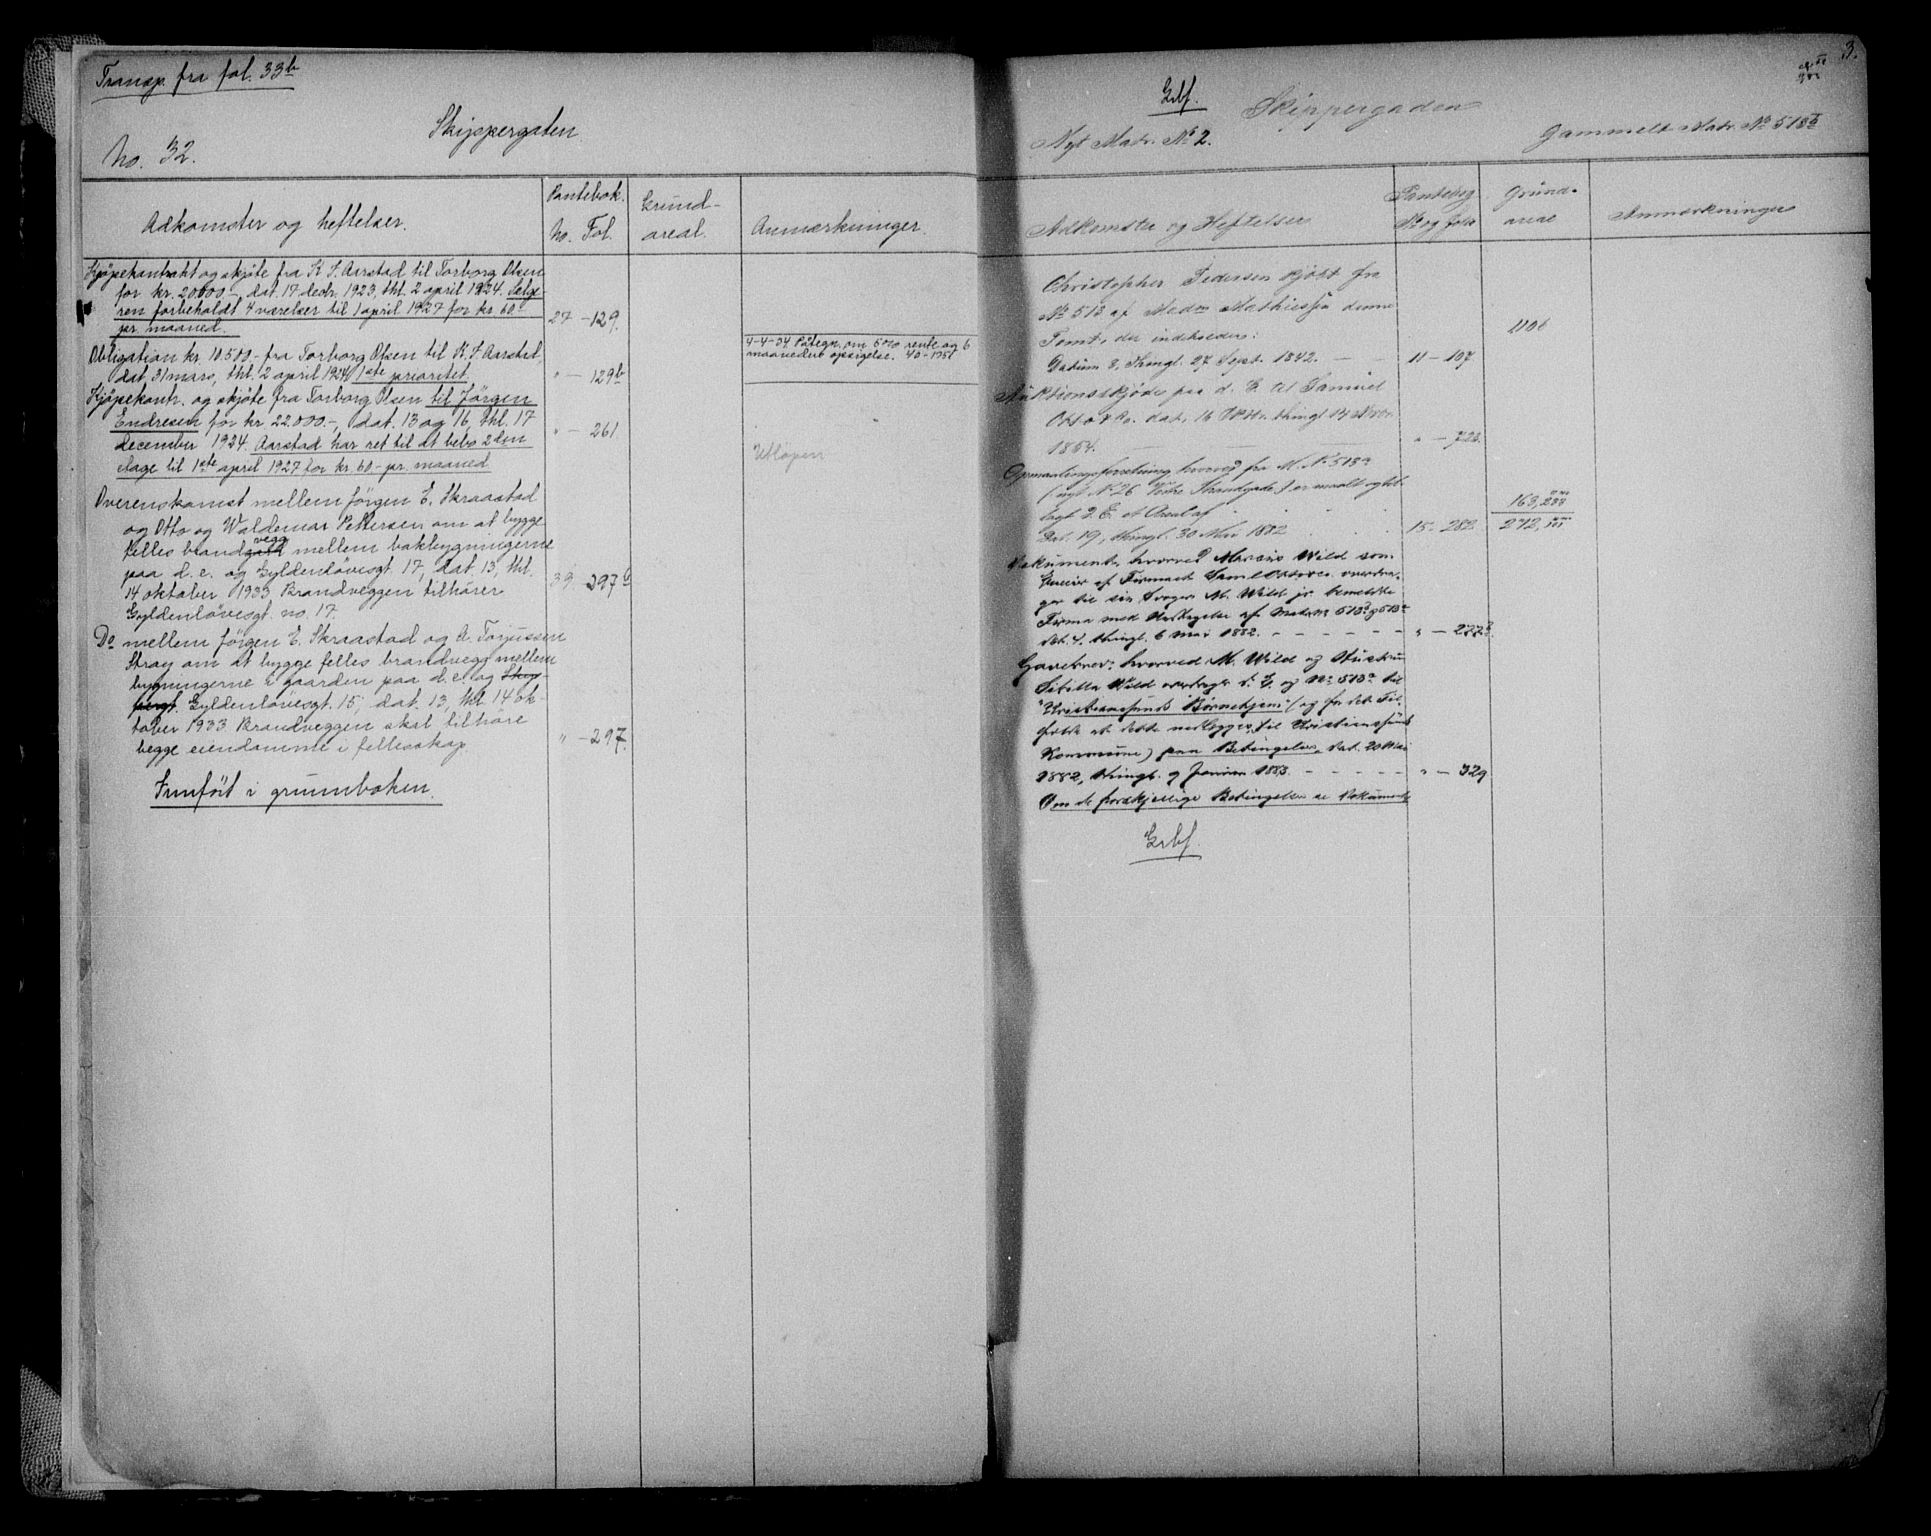 Transp. fra fol. 33b
Skippergaten
No. 32.
Adkomster og heftelser.
Pantebok.
No. Fol.
Grund-
areal.
Anmærkninger.
Kjøpekontrakt og skjøte fra K. S. Aarstad til Torborg Olsen
for kr. 20000-, dat. 17 decbr. 1923, thl. 2 april 1924. Selge-
ren forbeholdt 4 værelser til 1 april 1927 for kr. 60.-
pr. maaned.
27 - 129.
Obligation kr. 10.500.- fra Torborg Olsen til K. S. Aarstad,
dat. 31 mars, thl. 2 april 1924 1ste prioritet.
" - 129b
4-4-34 Påtegn. om 5% rente og 6
maaneders opsigelse. 40-
Kjøpekontr. og skjøte fra Torborg Olsen til Jörgen
Endresen for kr. 22.000.-, dat. 13 og 16, thl. 17
december 1924. Aarstad har ret til at bebo 2den
etage til 1ste april 1927 for kr. 60.- pr. maaned.
" - 261
Utløpen
Overenskomst mellem Jørgen E. Skraastad
og Otto og Waldemar Pettersen om at bygge
felles brandvegg mellem bakbygningerne
paa d. e. og Gyldenløvesgt. 17, dat. 13, thl.
14 oktober 1933 Brandveggen tilhører
Gyldenløvesgt. no. 17.
39. 297b
Do mellem Jørgen E. Skraastad og A. Torjussen
Stray om at bygge felles brandvegg mellem
bygningerne i gaarden paa d. e. og Skip-
pergt. Gyldenløvesgt. 15, dat. 13, thl. 14 ok-
tober 1933 Brandveggen skal tilhøre
begge eiendomme i fellesskap.
" - 297.
Innført i grunnboken.
3.
Grbf.
Skippergaden
Nyt Matr. No 2.
Gammelt Matr. No 513b
Adkomster og Heftelser
Pantebog
No og folio
Grund-
areal
Anmærkninger
Christopher Pedersen kjøbt fra
No 513 af Mathiessen denne
Tomt, der indeholder:
1106
Datum 8. Thingl. 27 Sept. 1842. - -
11 - 107
Auktionsskjøde paa d. E. til Samuel
Otto & Co. dat. 16 Oktbr. thingl. 14 Novbr.
1854.
" - 723.
Opmaalingsforretning hvorved fra M. No 513a
(nyt No 26 Vestre Strandgade) er maalt og til-
lagt d. E. et Areal af
163,
Dat. 19, thingl. 30 Mai 1882
15 - 282.
272,
Dokument, hvorved Marcus Wild som
Eneeier af Firmaet Saml Otto & Co. overdra-
ger til sin Svoger M. Wild jr. bemeldte
Firma med Undtagelse af Matr. No 513b og 513a
dat. 4. thingl. 6 Mai 1882. - - - - -
" - 277b.
Gavebrev, hvorved M. Wild og Hustru
Sibilla Wild overdrage d. E. og No 513a til
"Christianssands Børnehjem" (og for det Til-
fælde at dette nedlægges, til Christianssands
Kommune) paa Betingelser, dat. 20 Mai
1882, thingl. 9 Januar 1883. - - - - -
" - 329
Om de forskjellige Betingelser se Dokumentet.
Grbf.